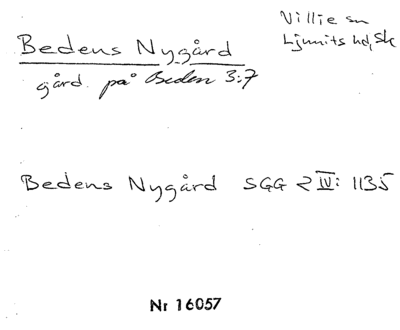 Villie sn
Ljunits hd, Sk
Bedens Nygård
gård på Beden 3:7
Bedens Nygård SGG 2 IV: 1135
Nr 16057